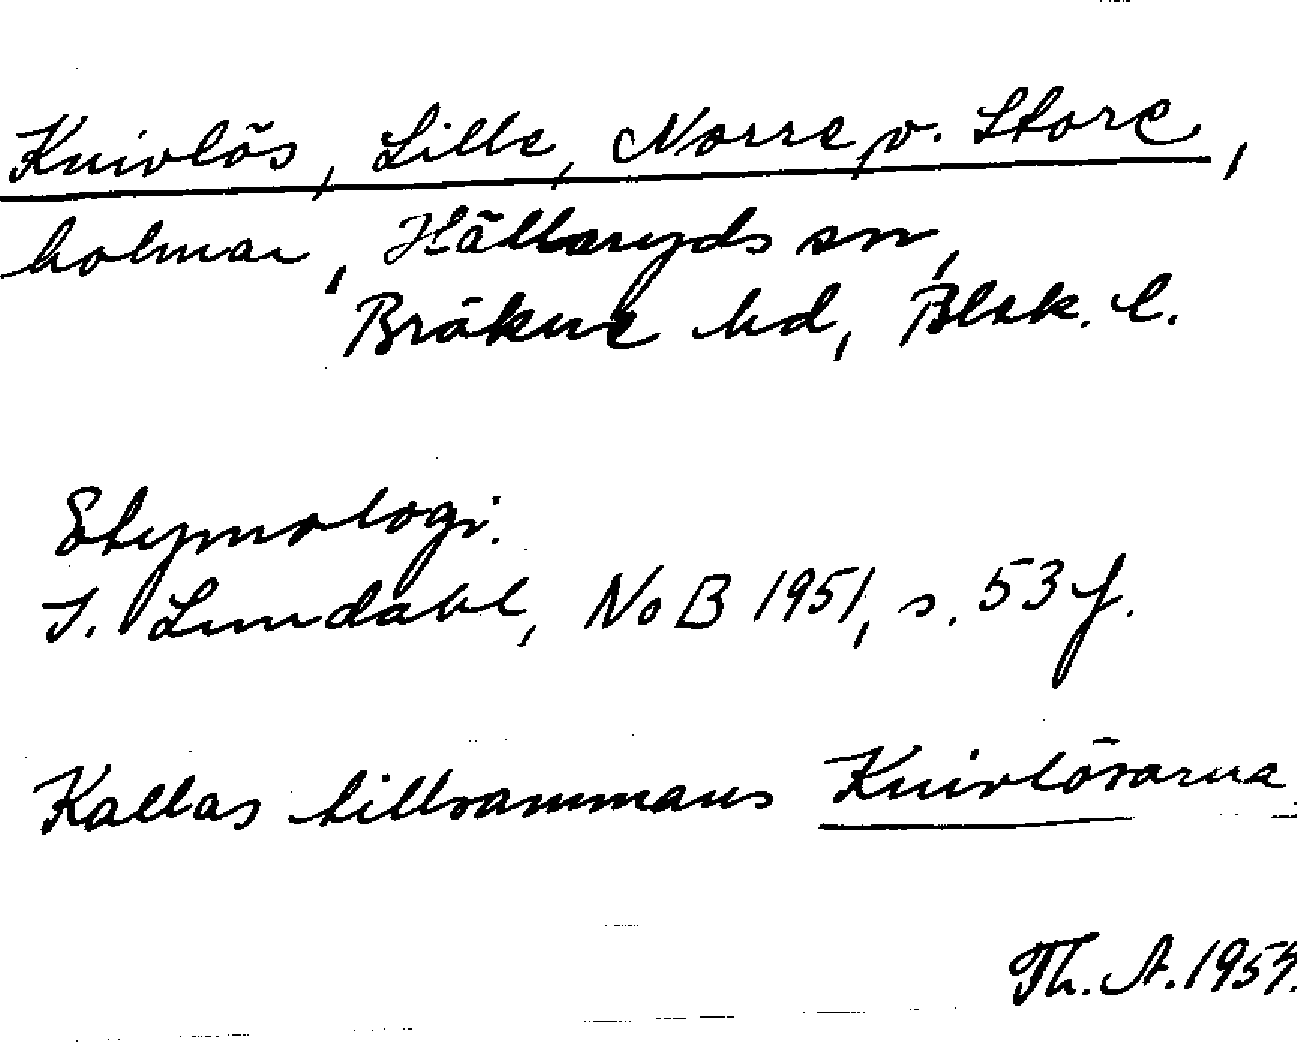 Knivlös, Lille, Norre, o. Store,
holmar, Hällaryds sn,
Bräkne hd, Blek. l.
Etymologi.
I. Lundahl, NoB 1951, s. 53 f.
Kallas tillsammans Knivlösarna
Th. A. 1953.